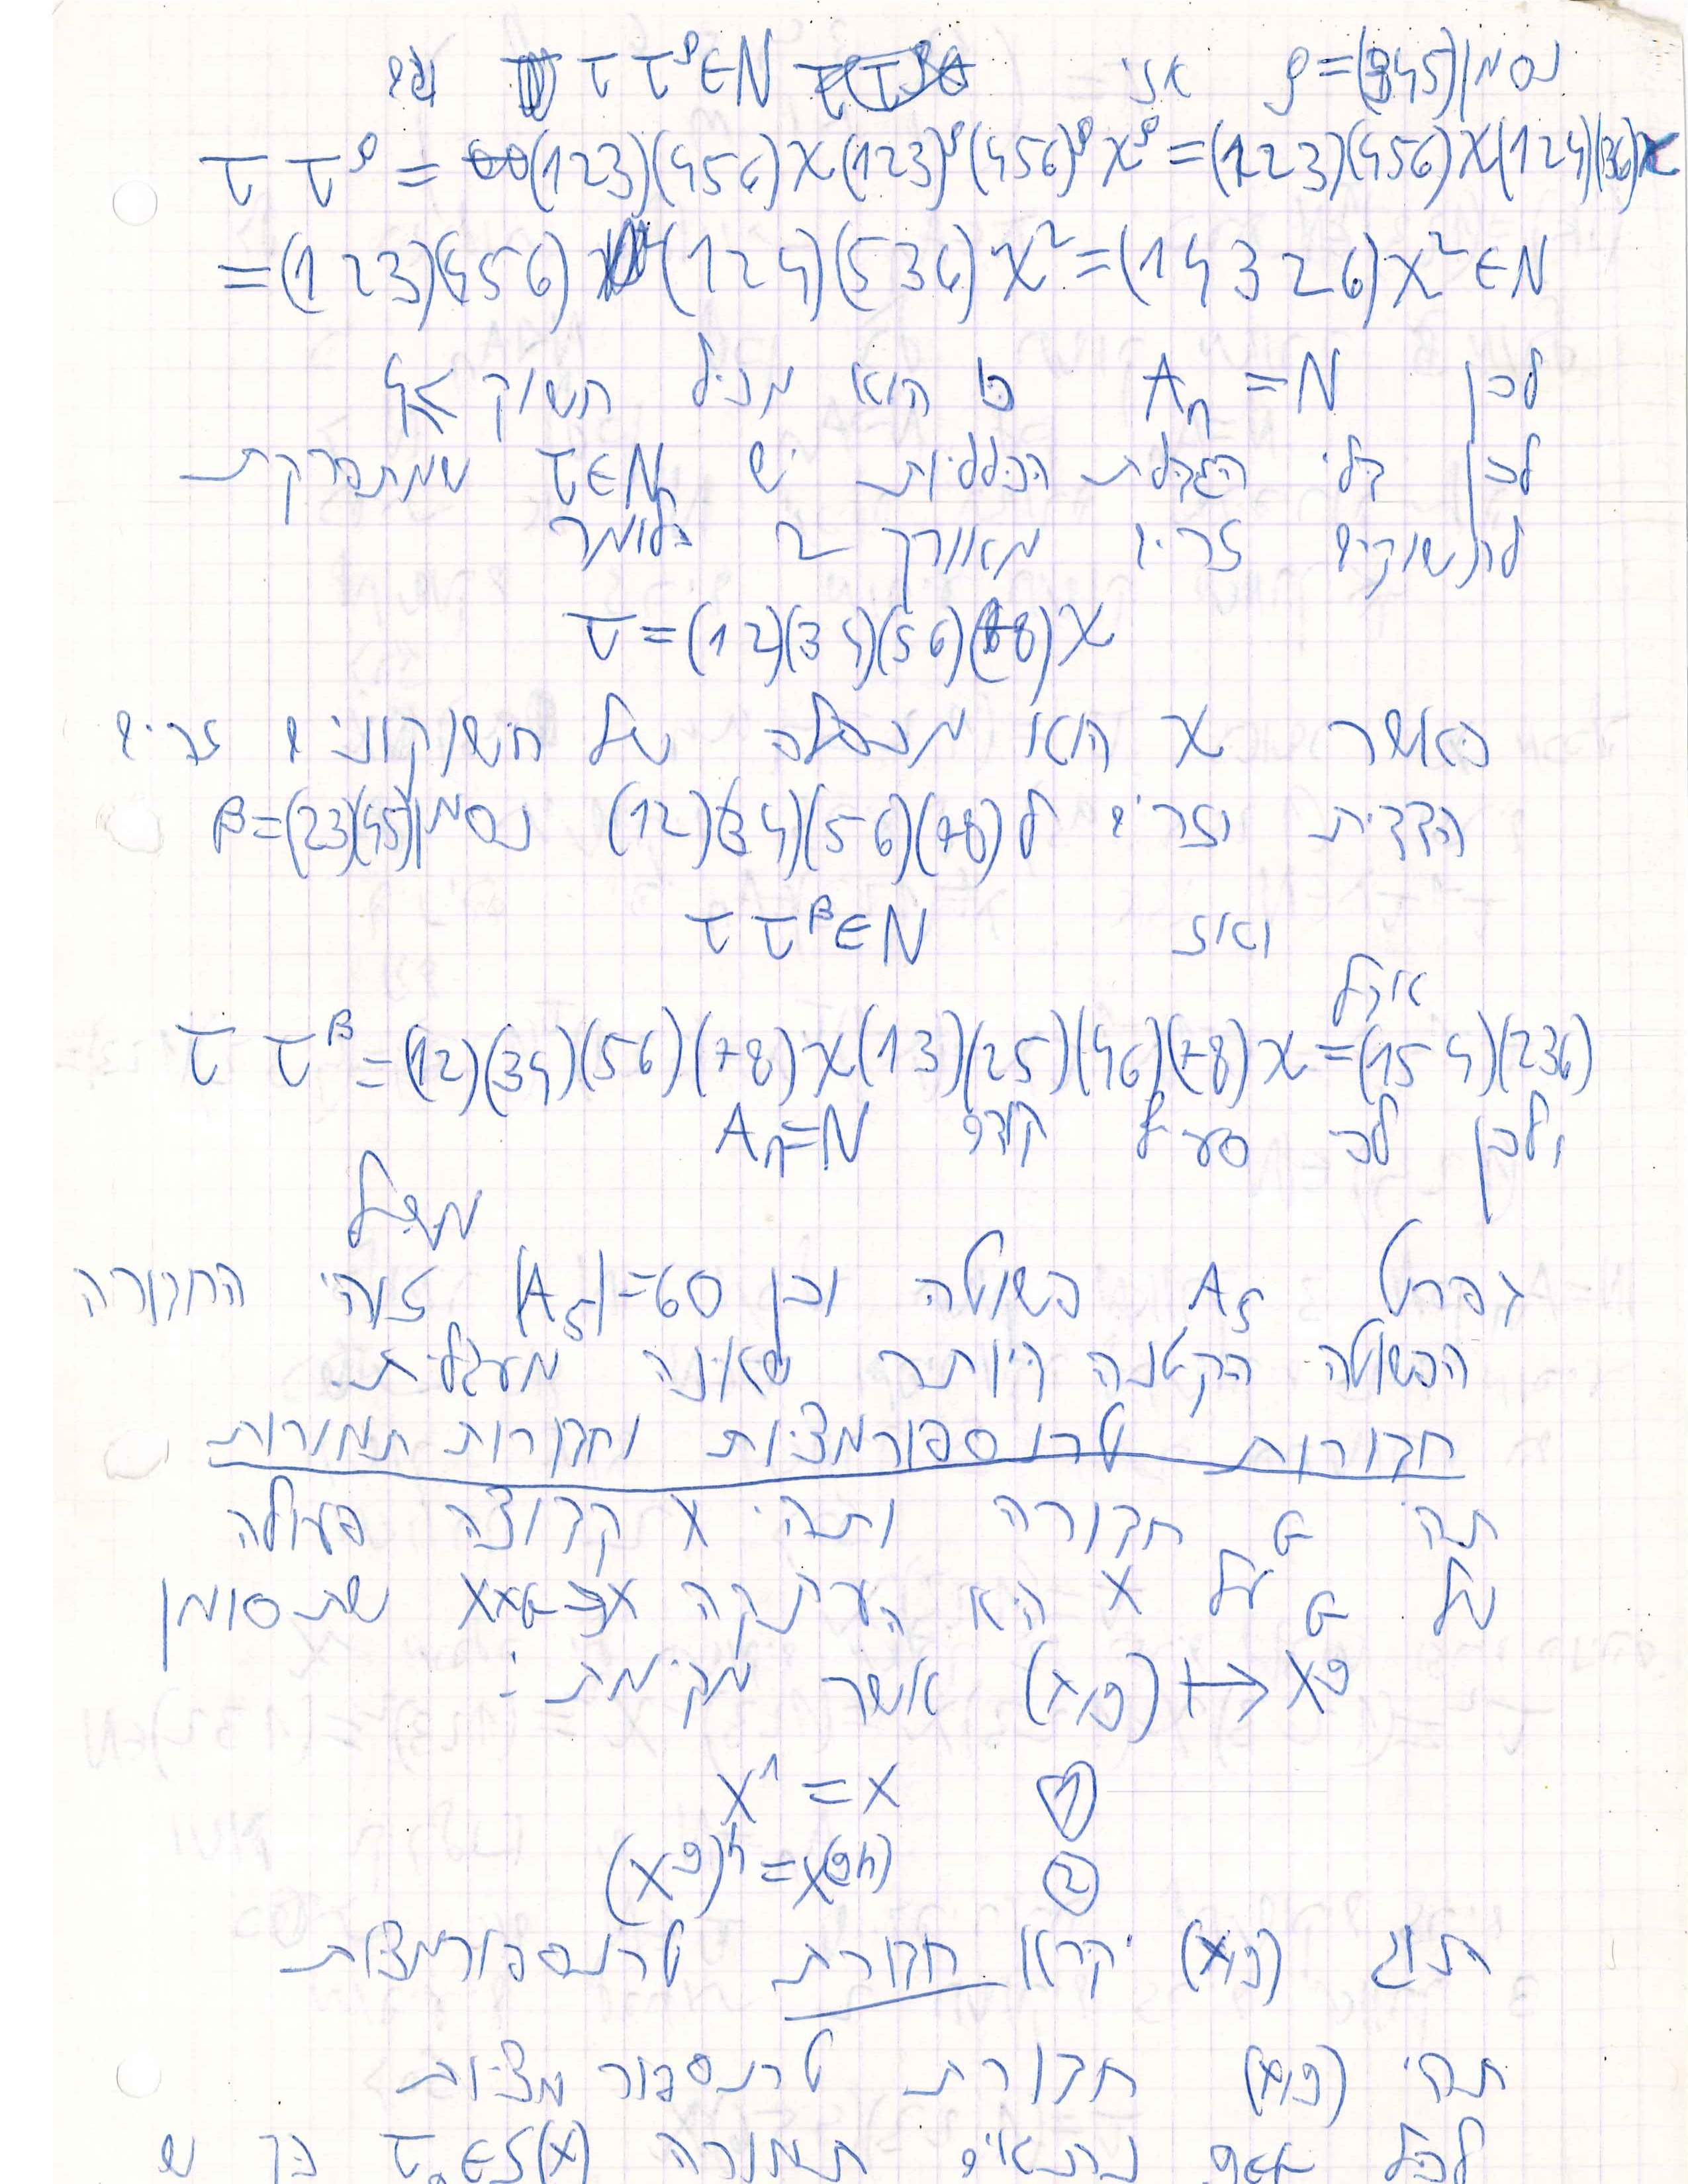 נסמן ρ=(345) אזי ττ^ρ∈N וגם
ττ^ρ = (123)(456)χ(123)^ρ(456)^ρ χ^ρ=(123)(456)χ(124)(536)χ
=(123)(456)(124)(536)χ²=(14326)χ²∈N
לכן A_n=N כי הוא מכיל חשוק ≥4
לכן בלי הגבלת הכלליות יש τ∈N שמתפרקת
לחשוקים זרים מאורך 2 כלומר
τ=(12)(34)(56)(78)χ
כאשר χ הוא מכפלה של חשוקונים זרים
הדדית וזרים ל (12)(34)(56)(78) נסמן β=(23)(45)
ואז ττ^β∈N
אבל
ττ^β=(12)(34)(56)(78)χ(13)(25)(46)(78)χ=(154)(236)
ולכן לפי סעיף קודם A_n=N
משל
בפרט A₅ פשוטה וכן |A₅|=60 זוהי החבורה
הפשוטה הקטנה ביותר שאינה מעגלית.
חבורות טרנספורמציות וחבורות תמורות
תהי G חבורה ותהי X קבוצה פעולה
של G על X היא העתקה X×G→X שתסומן
(x,g)↦x^g אשר מקימת:
① x^1=x
② (x^g)^h=x^(gh)
הזוג (G,X) יקרא חבורת טרנספורמציות
תהי (G,X) חבורת טרנספורמציות
לכל g∈G נתאים תמורה τ_g∈S(X) כך ש